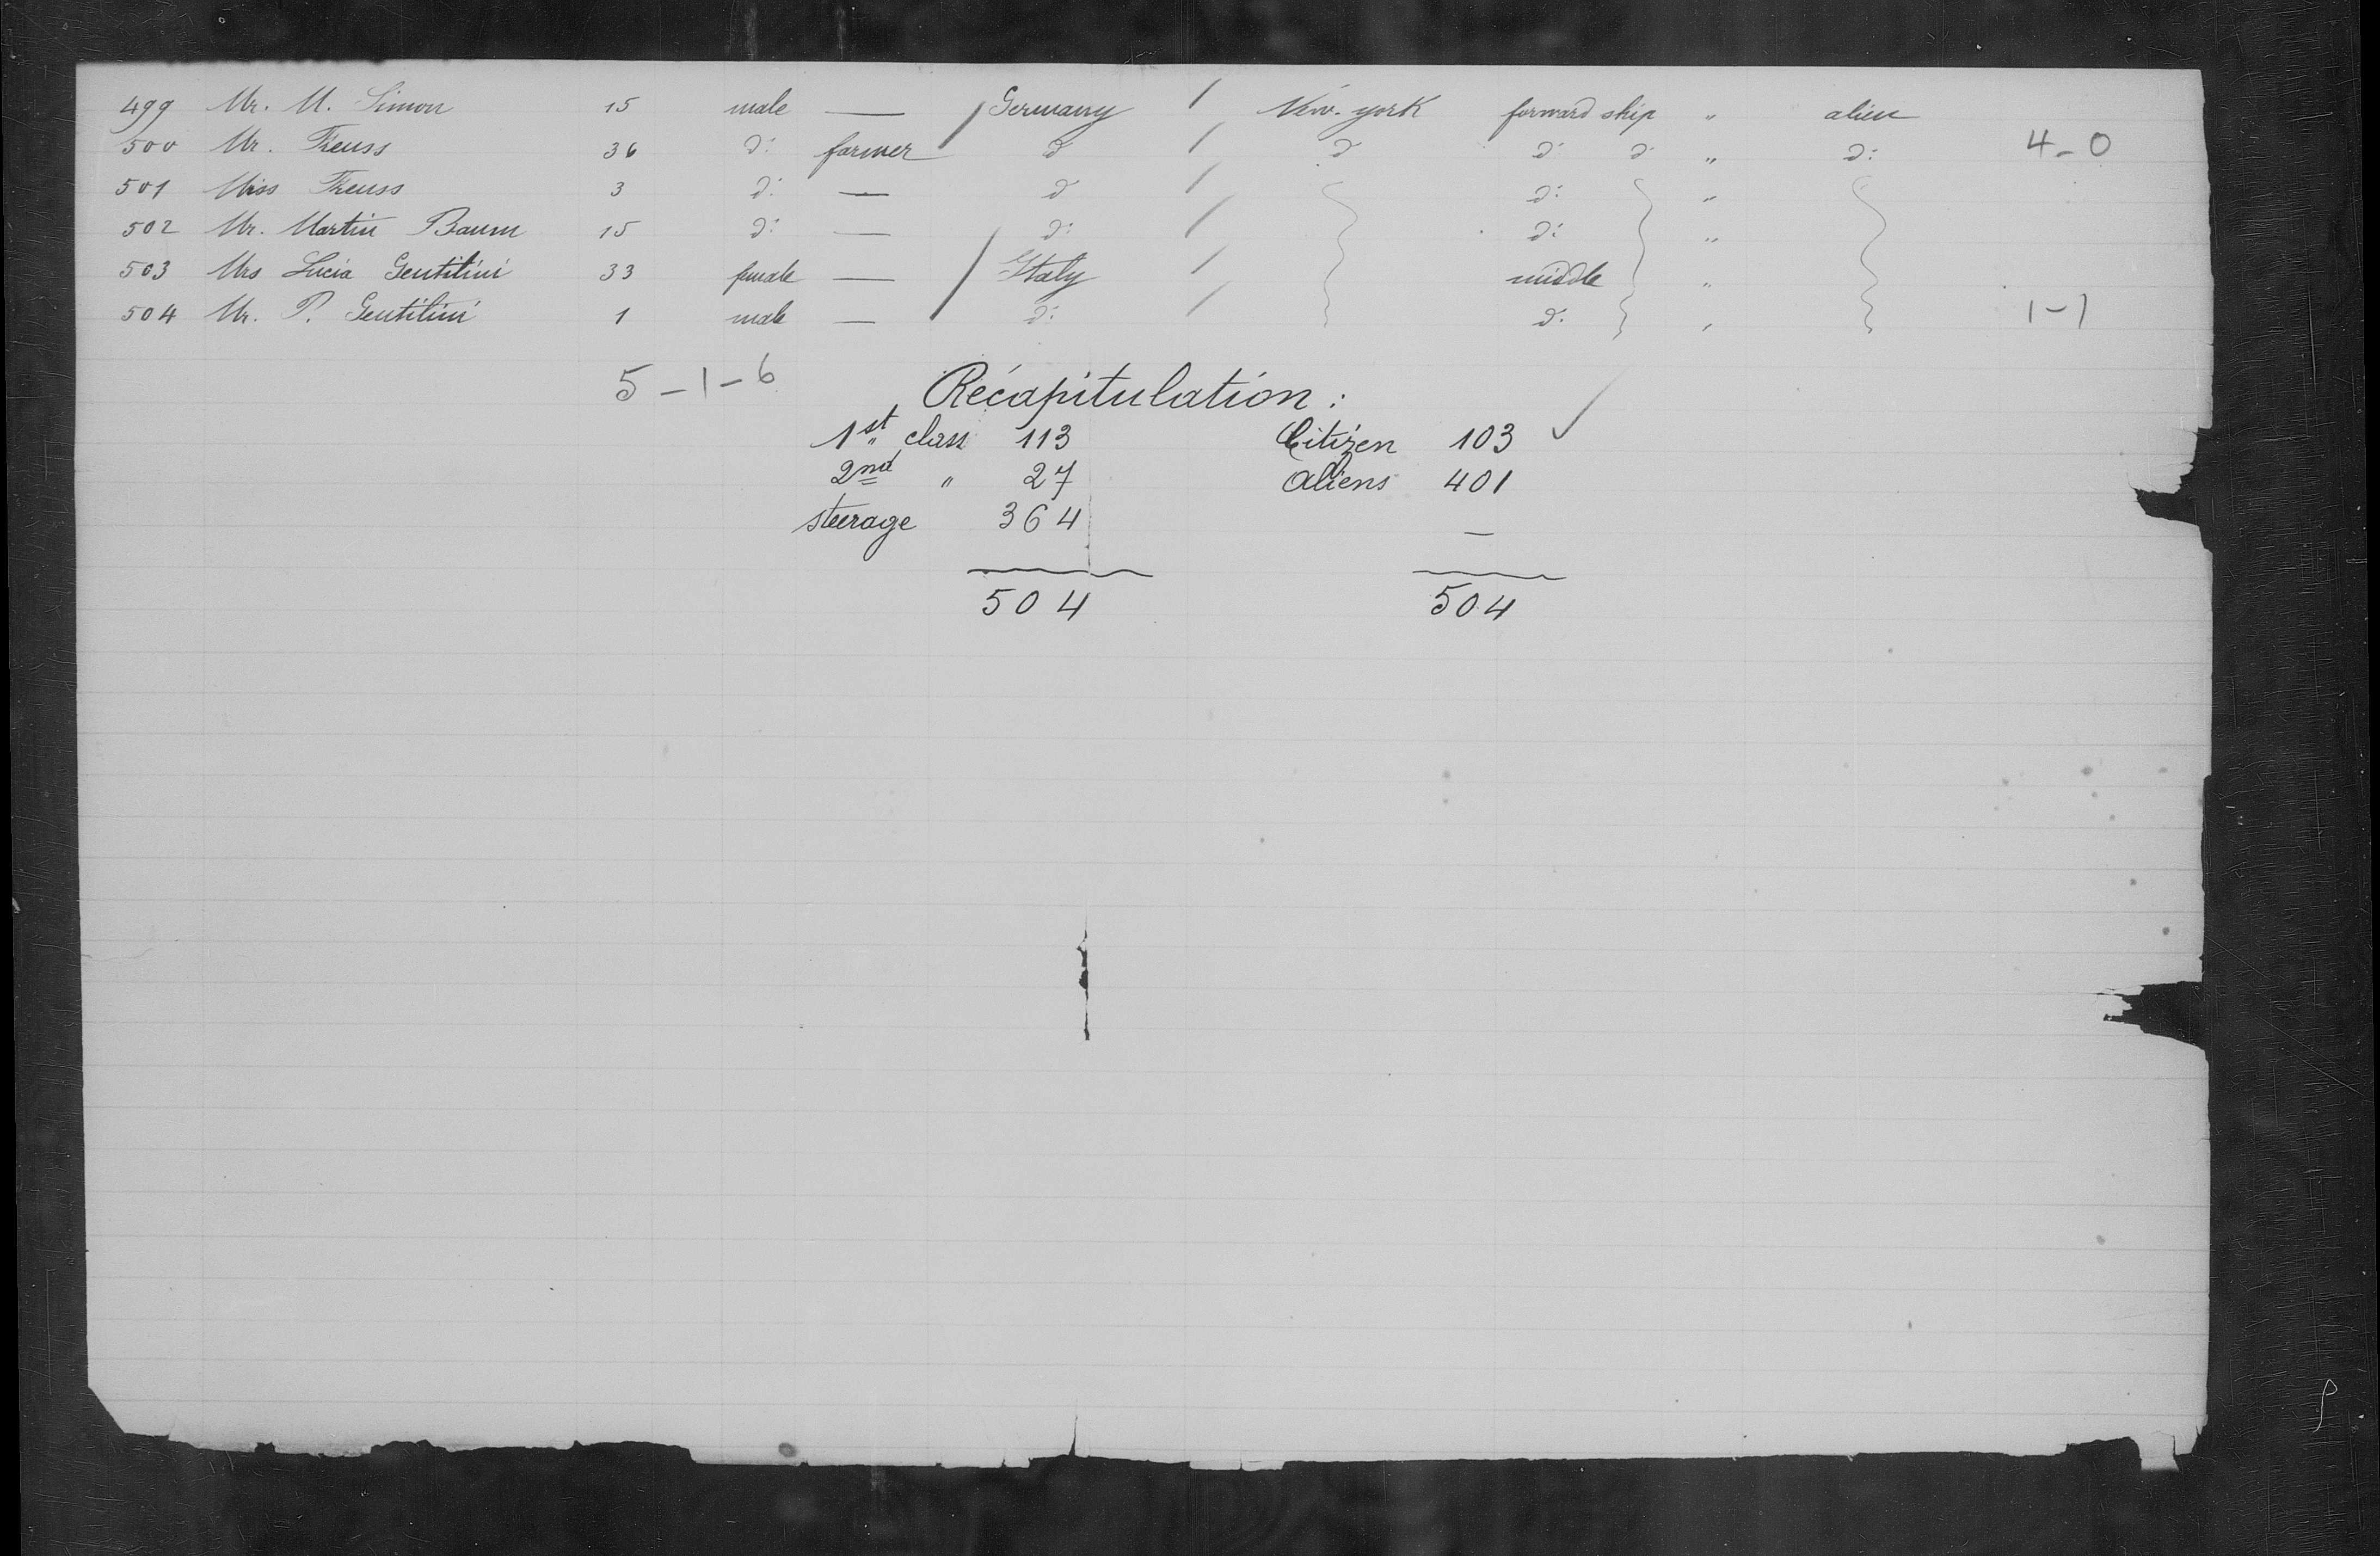 499 Mr. M. Simon 15 male — Germany / New-york forward ship " alien
500 Mr. Theuss 36 d: farmer d / d d d " d: 4-0
501 Miss Theuss 3 d: — d / d: "
502 Mr. Martin Baum 15 d: — d: / d: "
503 Mrs Lucia Gentilini 33 female — Italy / middle "
504 Mr. P. Gentilini 1 male — d: / d: " 1-1
5-1-6
Récapitulation:
1st class 113 Citizen 103 ✓
2nd " 27 aliens 401
steerage 364 —
504 504